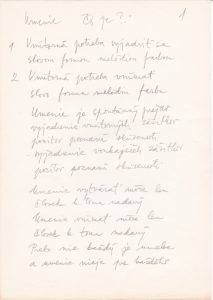 Umenie Čo je?. 1
1 Vnútorná potreba vyjadriť sa
slovom formou melódiou farbou
2 Vnútorná potreba vnímať
slovo formu melódiu farbu
Umenie je spontánny prejav
vyjadrenie vnútorných zážitkov
pocitov poznaní skúseností
vyjadrenie vonkajších zážitkov
pocitov poznaní skúseností
Umenie vytvárať môže len
človek k tomu nadaný
Umenie vnímať môže len
človek k tomu nadaný
Preto nie každý je umelec
a umenie nie je pre každého